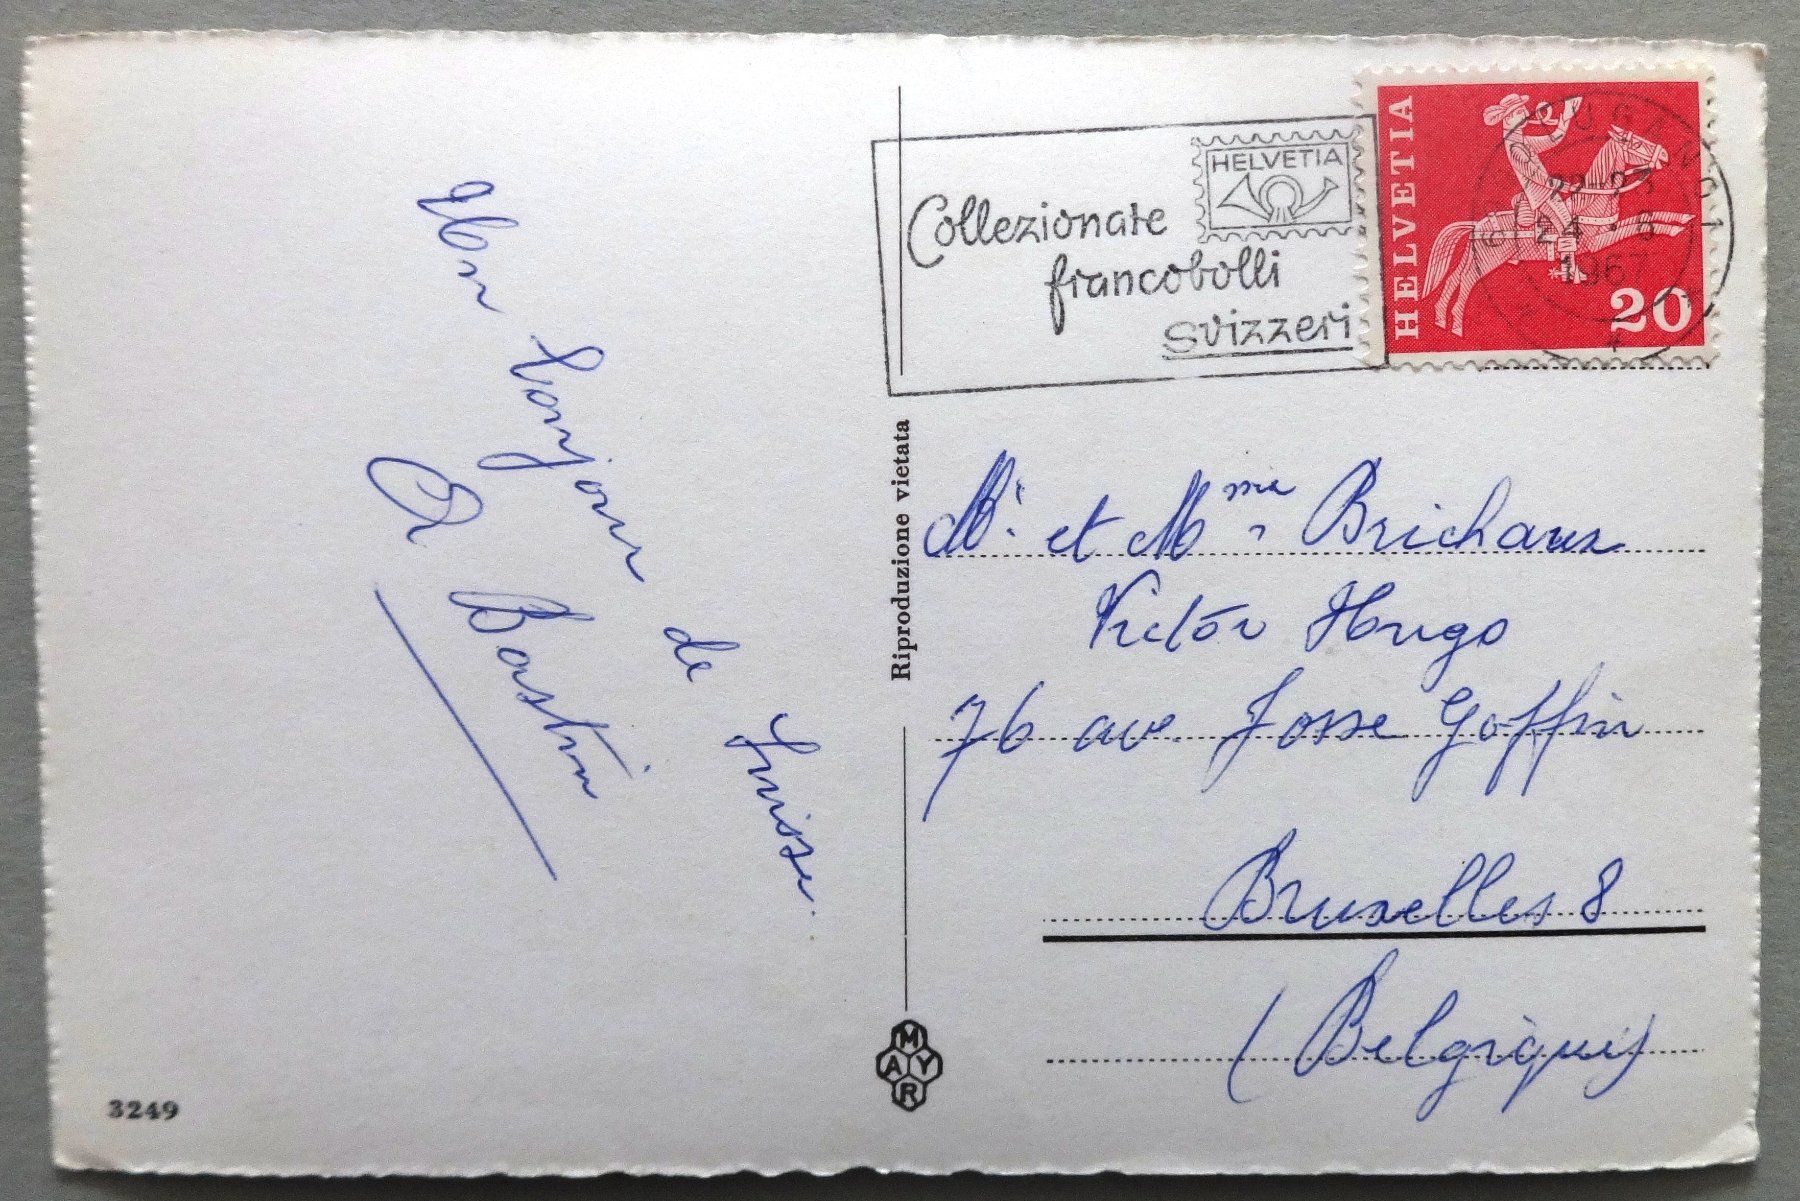 Un bonjour de Suisse.
R. Bastin
3249
Riproduzione vietata
MAYR
Collezionate
francobolli
svizzeri
HELVETIA
HELVETIA
20
22-23
24.8
1967
Mr. et Mme Brichaux
Victor Hugo
76 ave Josse Goffin
Bruxelles 8
(Belgique)